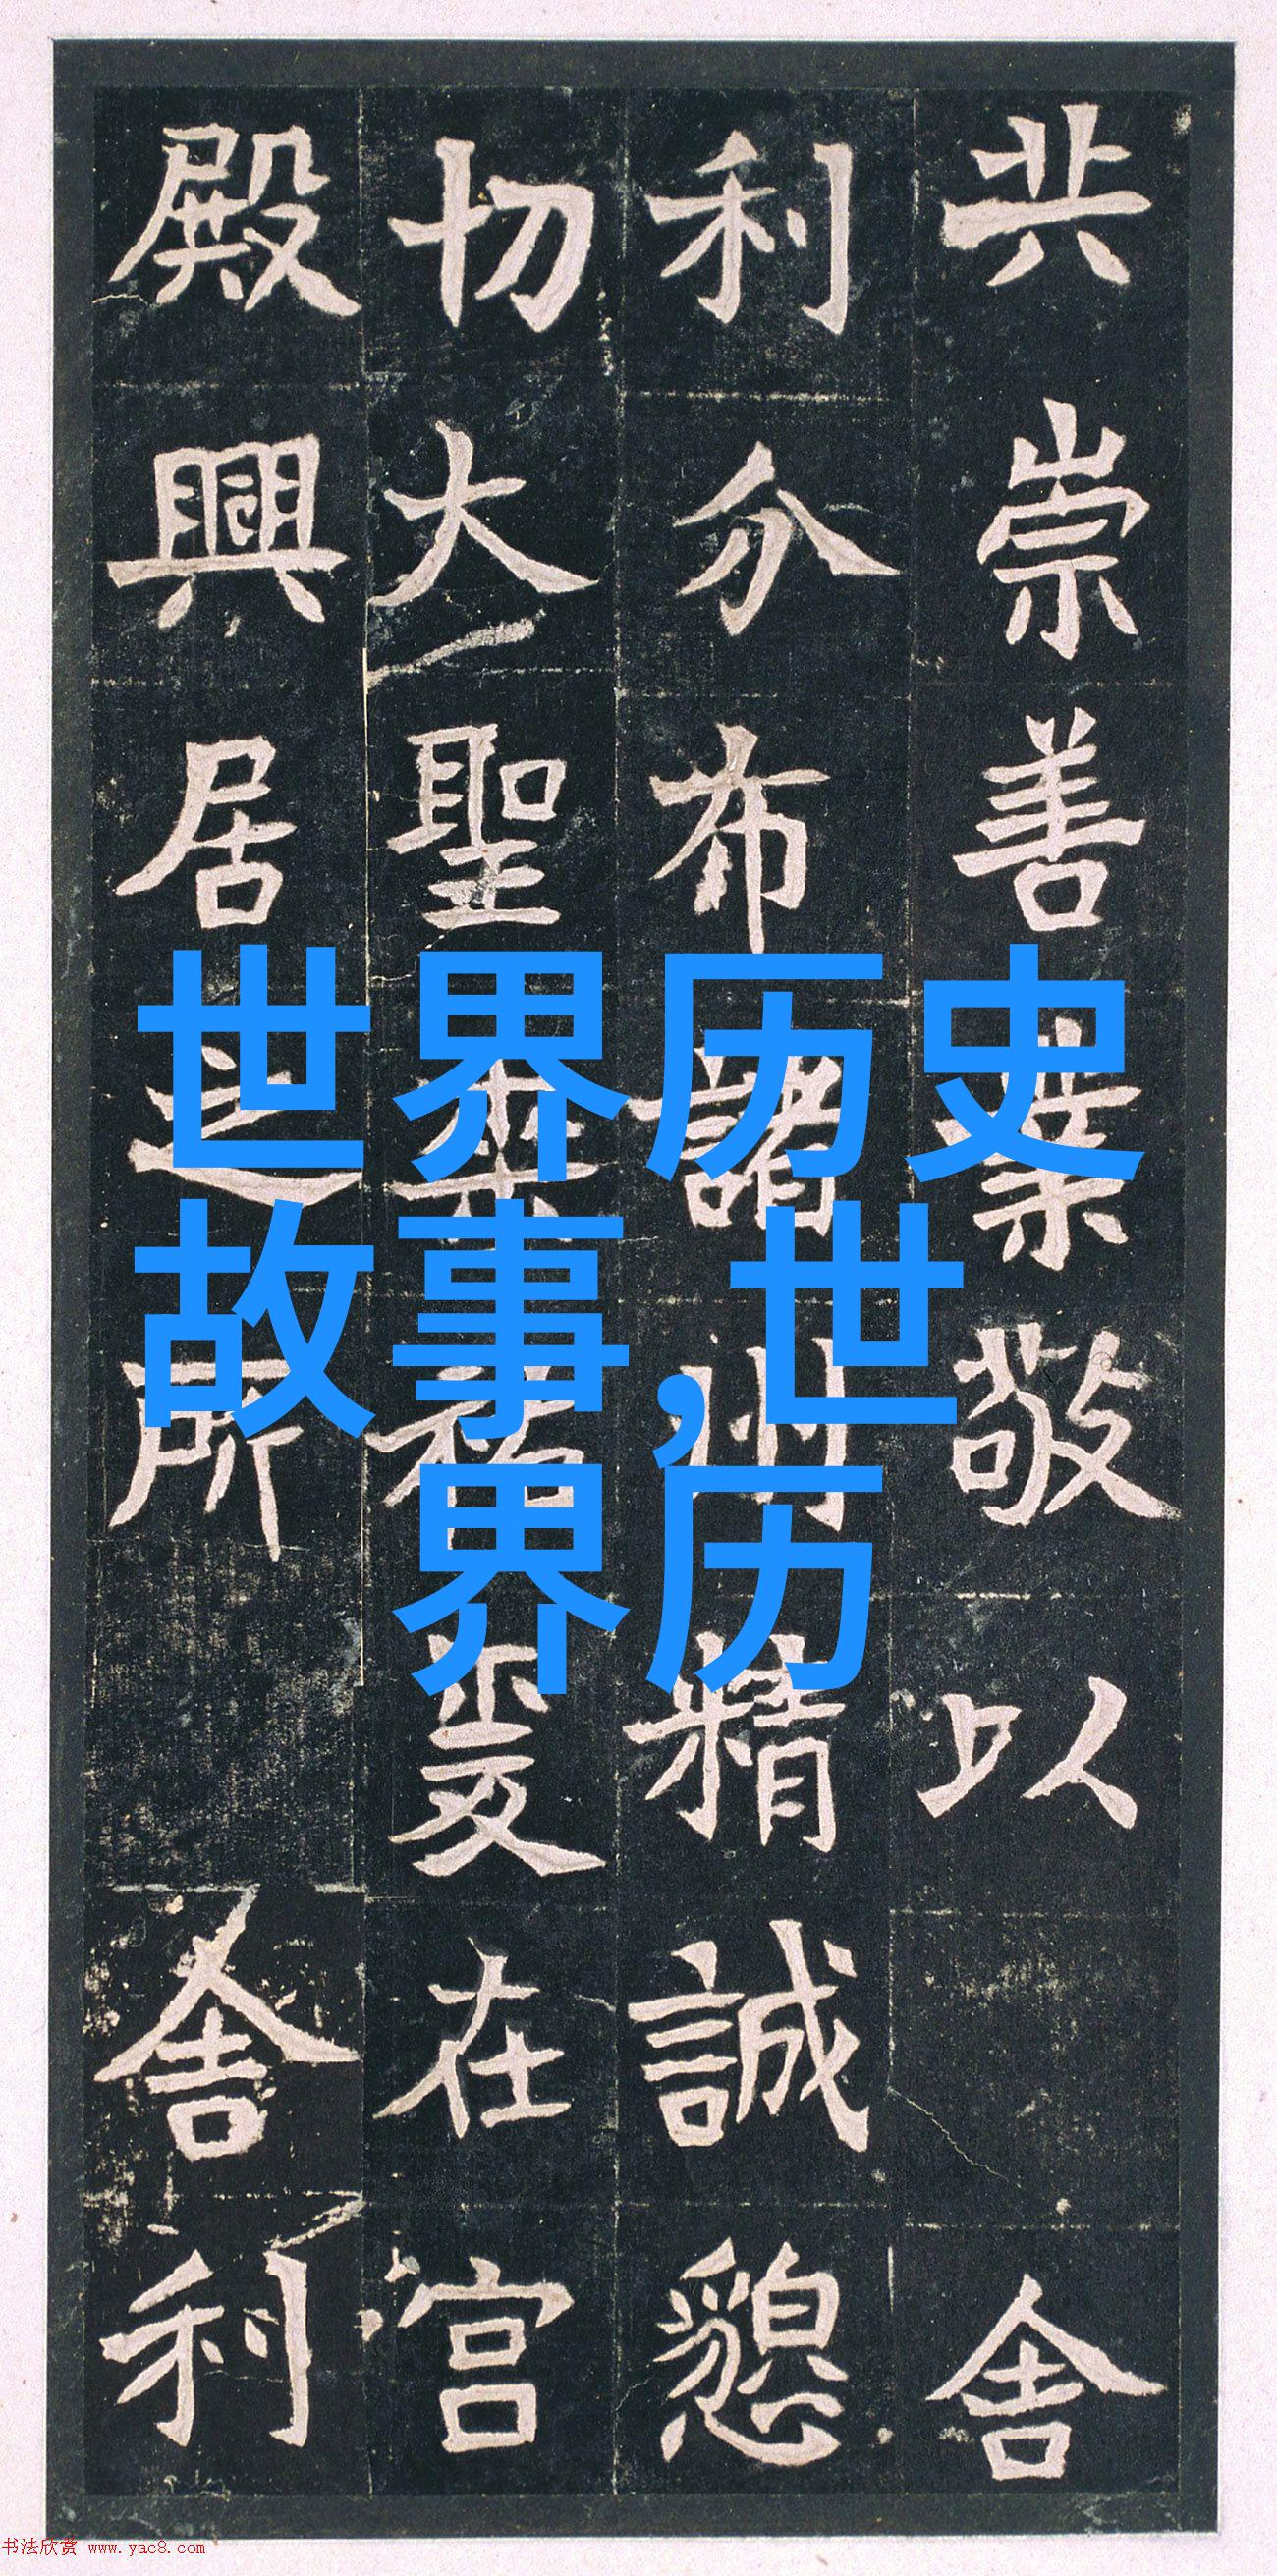 共崇善業敬以舍
利分布諸州精誠懇
切大聖垂祐爰在宫
殿興居之所舍利
世界历史
故事,世
界历
书法欣赏 www.yac8.com